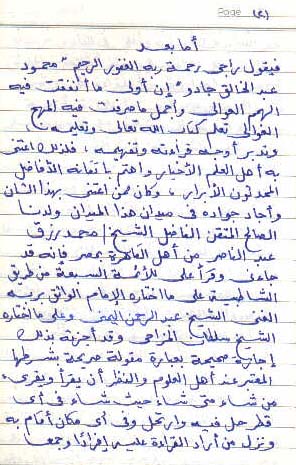 Page (٢)
أما بعد
فيقول راجى رحمة ربه الغفور الرحيم "محمود
عبد الخالق جادو" إن أولى ما أنفقت فيه
الهمم العوالى وأجمل ما صرفت فيه المهج
الغوالى تعلم كتاب الله تعالى وتعليمه
وتدبر أوجه قراءته وتفهيمه، فلذلك اعتنى
به أهل العلم الأخيار واهتم بإتقانه الأفاضل
المحدثون الأبرار، وكان ممن اعتنى بهذا الشأن
وأجاد جواده فى ميدان هذا الميدان ولدنا
الصالح المتقن الفاضل الشيخ / محمد رزق
عبد الناصر من أهل القاهرة بمصر فإنه قد
جاءنى وقرأ على للأئمة السبعة من طريق
الشاطبية على ما اختاره الإمام الواثق بربه
الغنى الشيخ عبد الرحمن اليمنى وعلى ما اختاره
الشيخ سلطان المزاحى وقد أجزته بذلك
إجازة صحيحة بعبارة مقولة صريحة بشرطها
المعتبر عند أهل العلوم والنظر أن يقرأ ويقرىء
من شاء متى شاء حيث شاء فى أى
قطر حل فيه وارتحل وفى أى مكان أقام به
ونزل من أراد القراءة عليه إفرادًا وجمعا